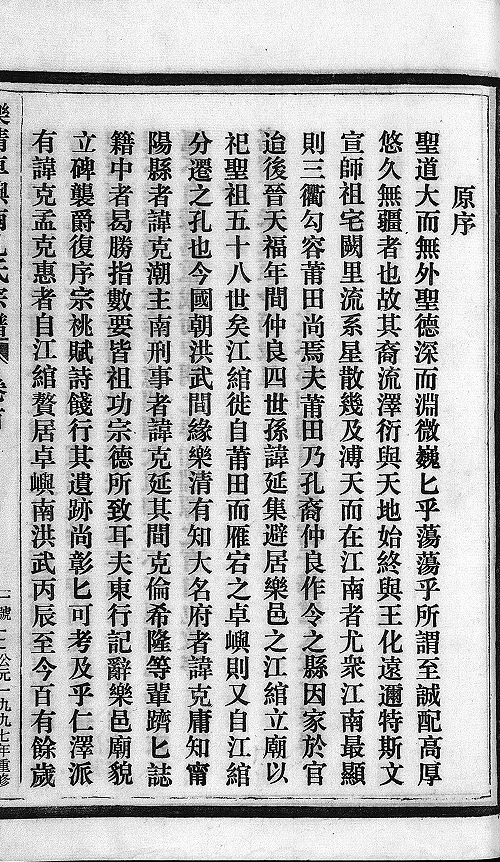 原序
聖道大而無外聖德深而淵微巍匕乎蕩蕩乎所謂至誠配高厚
悠久無疆者也故其裔流澤衍與天地始終與王化遠邇特斯文
宣師祖宅闕里流系星散幾及溥天而在江南者尤衆江南最顯
則三衢勾容莆田尚焉夫莆田乃孔裔仲良作令之縣因家於官
迨後晉天福年間仲良四世孫諱延集避居樂邑之江綰立廟以
祀聖祖五十八世矣江綰徙自莆田而雁宕之卓嶼則又自江綰
分遷之孔也今國朝洪武間緣樂清有知大名府者諱克庸知甯
陽縣者諱克潮主南刑事者諱克延其間克倫希隆等輩躋匕誌
籍中者曷勝指數要皆祖功宗德所致耳夫東行記辭樂邑廟貌
立碑襲爵復序宗祧賦詩餞行其遺跡尚彰匕可考及乎仁澤派
有諱克孟克惠者自江綰贅居卓嶼南洪武丙辰至今百有餘歲
樂清卓嶼南孔氏宗譜 卷首
公元一九九七年重修